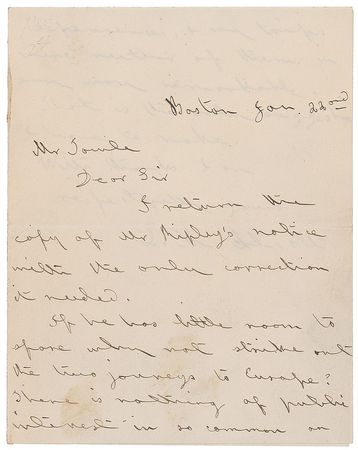 Boston Jan. 22nd
Mr Towle
Dear Sir
I return the
copy of Mr Ripley's notice
with the only correction
it needed.
If he has little room to
spare why not strike out
the two journeys to Europe?
There is nothing of public
interest in so common an